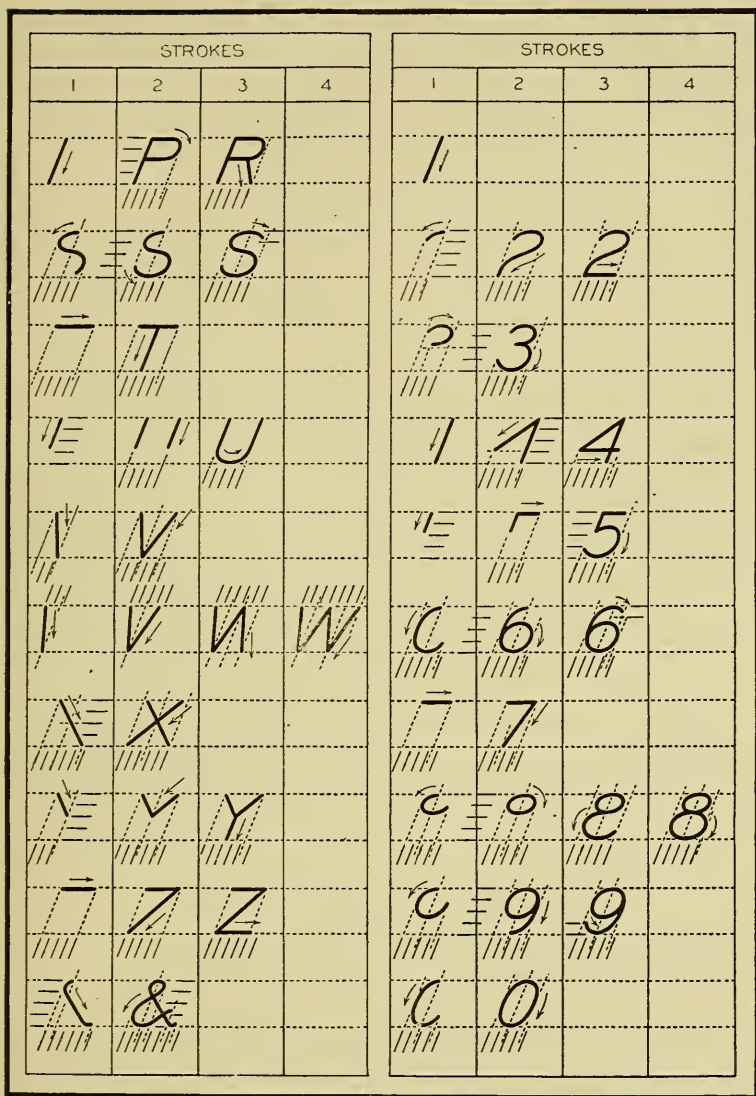 STROKES
1 2 3 4
P R
S S S
T
U
V
V W
X
Y
Z
&
STROKES
1 2 3 4
1
2
3
4
5
6 6
7
8
9 9
0